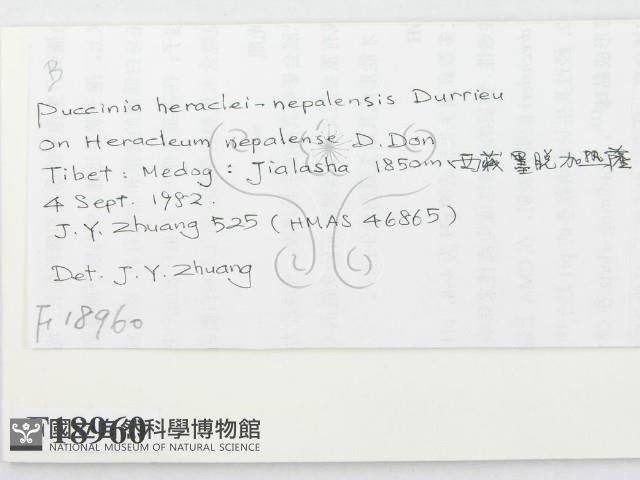 B
Puccinia heraclei-nepalensis Durrieu
on Heracleum nepalense D. Don
Tibet: Medog: Jialasha 1850m, 西藏墨脱加热萨
4 Sept. 1982.
J. Y. Zhuang 525 (HMAS 46865)
Det. J. Y. Zhuang
F18960
F18960
國立自然科學博物館
NATIONAL MUSEUM OF NATURAL SCIENCE